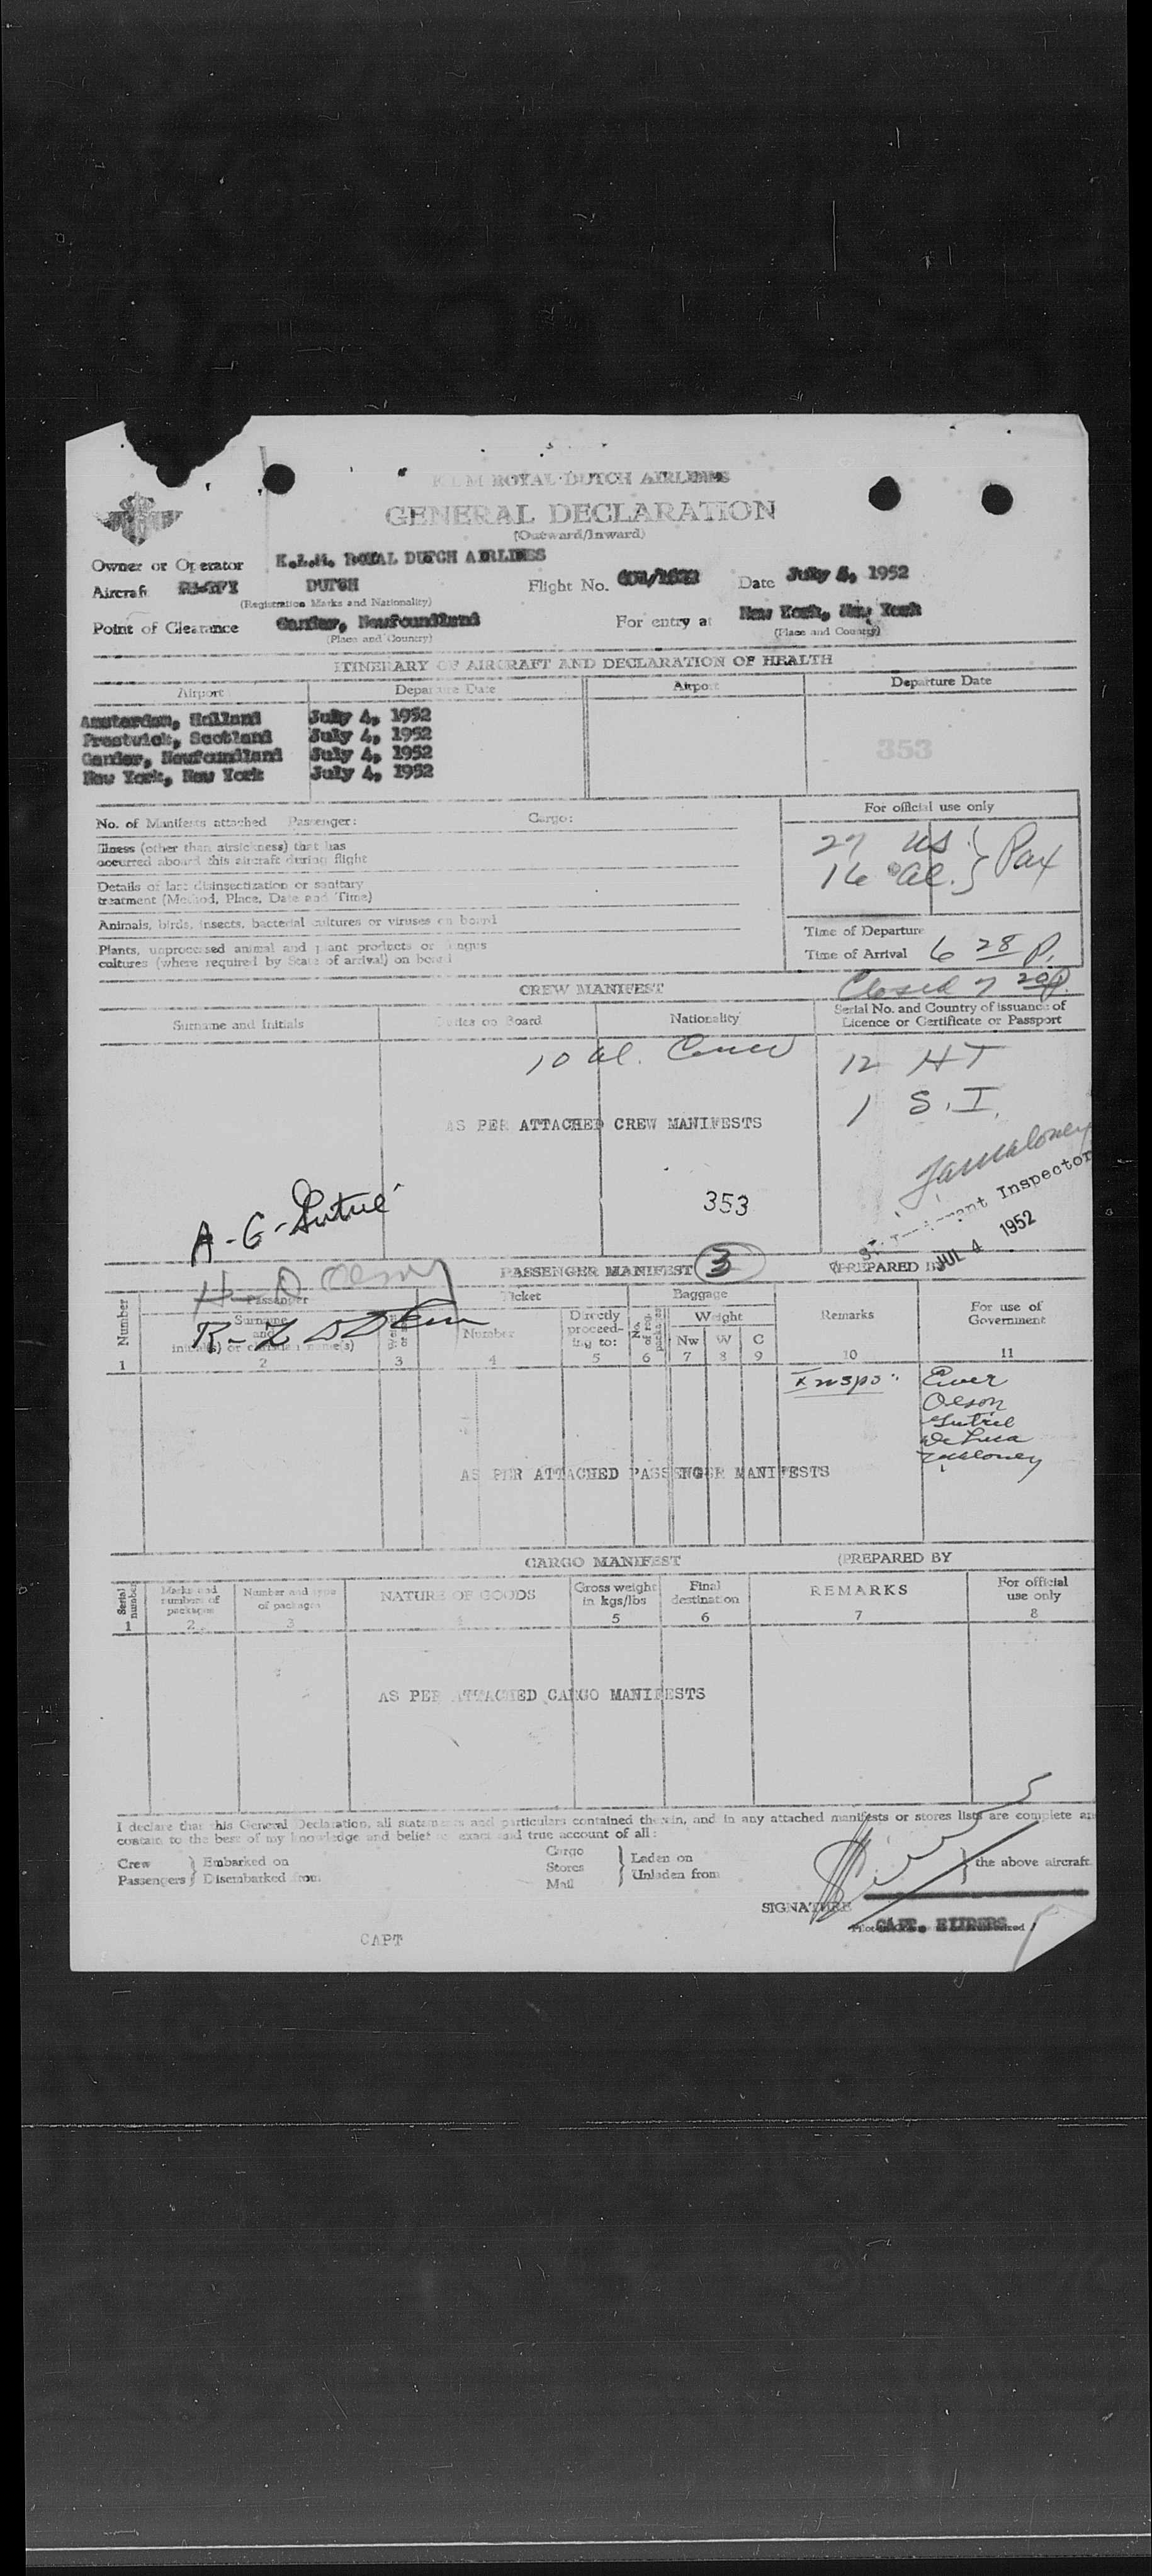 K L M ROYAL DUTCH AIRLINES
GENERAL DECLARATION
(Outward/Inward)
Owner or Operator K.L.M. ROYAL DUTCH AIRLINES
Aircraft DUTCH Flight No. Date July 1952
(Registration Marks and Nationality)
Point of Clearance Gander, Newfoundland For entry at New York, New York
(Place and Country) (Place and Country)
ITINERARY OF AIRCRAFT AND DECLARATION OF HEALTH
Airport Departure Date Airport Departure Date
Amsterdam, Holland July 4, 1952
Prestwick, Scotland July 4, 1952
Gander, Newfoundland July 4, 1952
New York, New York July 4, 1952
353
No. of Manifests attached Passenger: Cargo:
For official use only
Illness (other than airsickness) that has
occurred aboard this aircraft during flight
27 US
16 al. } Pax
Details of last disinsectization or sanitary
treatment (Method, Place, Date and Time)
Animals, birds, insects, bacterial cultures or viruses on board
Plants, unprocessed animal and plant products or fungus
cultures (where required by State of arrival) on board
Time of Departure
Time of Arrival 6 28 P.
Closed 7 20 P.
CREW MANIFEST
Surname and Initials Duties on Board Nationality Serial No. and Country of issuance of
Licence or Certificate or Passport
10 al. Crew 12 HT
1 S. I.
AS PER ATTACHED CREW MANIFESTS
Maloney
Immigrant Inspector
JUL 4 1952
353
A-G-
H- D Olson
R-
PASSENGER MANIFEST 3 (PREPARED BY
Number Passenger Ticket Baggage Remarks For use of
Government
Surname
and
initial(s) or christian name(s)
Number Directly
proceed-
ing to: Weight
Nw W C
1 2 3 4 5 6 7 8 9 10 11
Inspo:
Olson
De Luca
Maloney
AS PER ATTACHED PASSENGER MANIFESTS
CARGO MANIFEST (PREPARED BY
Serial
number Marks and
numbers of
packages Number and type
of packages NATURE OF GOODS Gross weight
in kgs/lbs Final
destination REMARKS For official
use only
1 2 3 4 5 6 7 8
AS PER ATTACHED CARGO MANIFESTS
I declare that this General Declaration, all statements and particulars contained therein, and in any attached manifests or stores lists are complete an
contain to the best of my knowledge and belief an exact and true account of all:
Crew
Passengers } Embarked on
Disembarked from
Cargo
Stores
Mail } Laden on
Unladen from } the above aircraft
SIGNATURE
CAPT.
CAPT